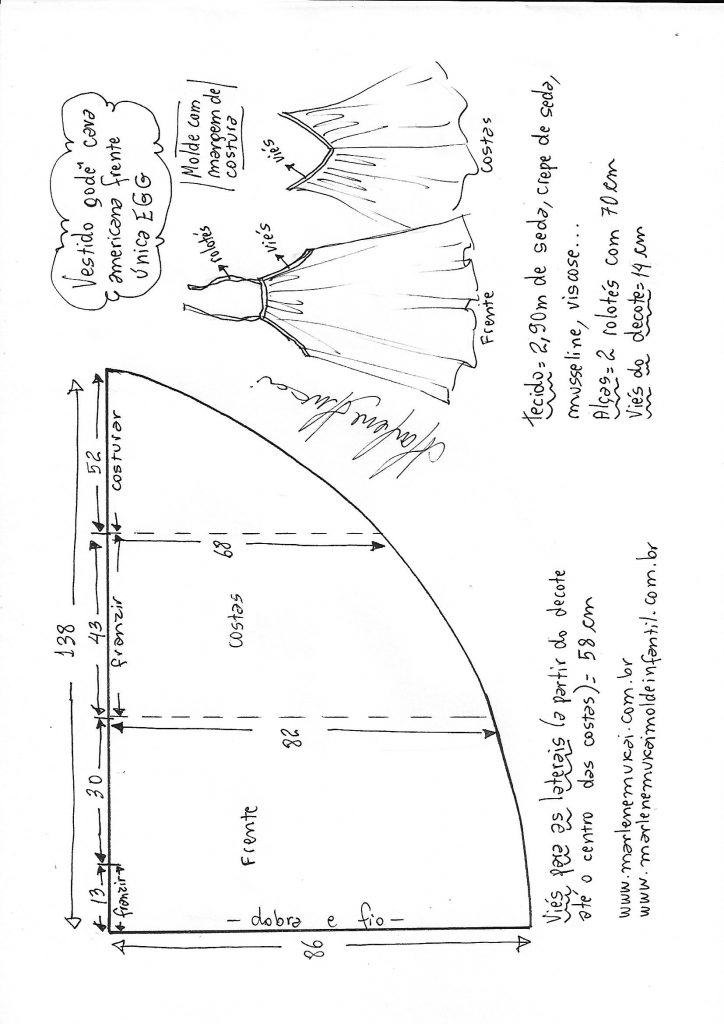 Vestido godê" cava
americana frente
única EGG
Molde com
margem de
costura
rolotés
viés
Frente
viés
costas
138
13
30
43
52
franzir
franzir
costurar
68
costas
82
Frente
- dobra e fio -
86
Marlene Mukai
Tecido = 2,90m de seda, crepe de seda,
musseline, viscose...
Alças = 2 rolotés com 70 cm
Viés do decote = 14 cm
Viés para as laterais (a partir do decote
até o centro das costas) = 58 cm
www.marlenemukai.com.br
www.marlenemukaimoldeinfantil.com.br